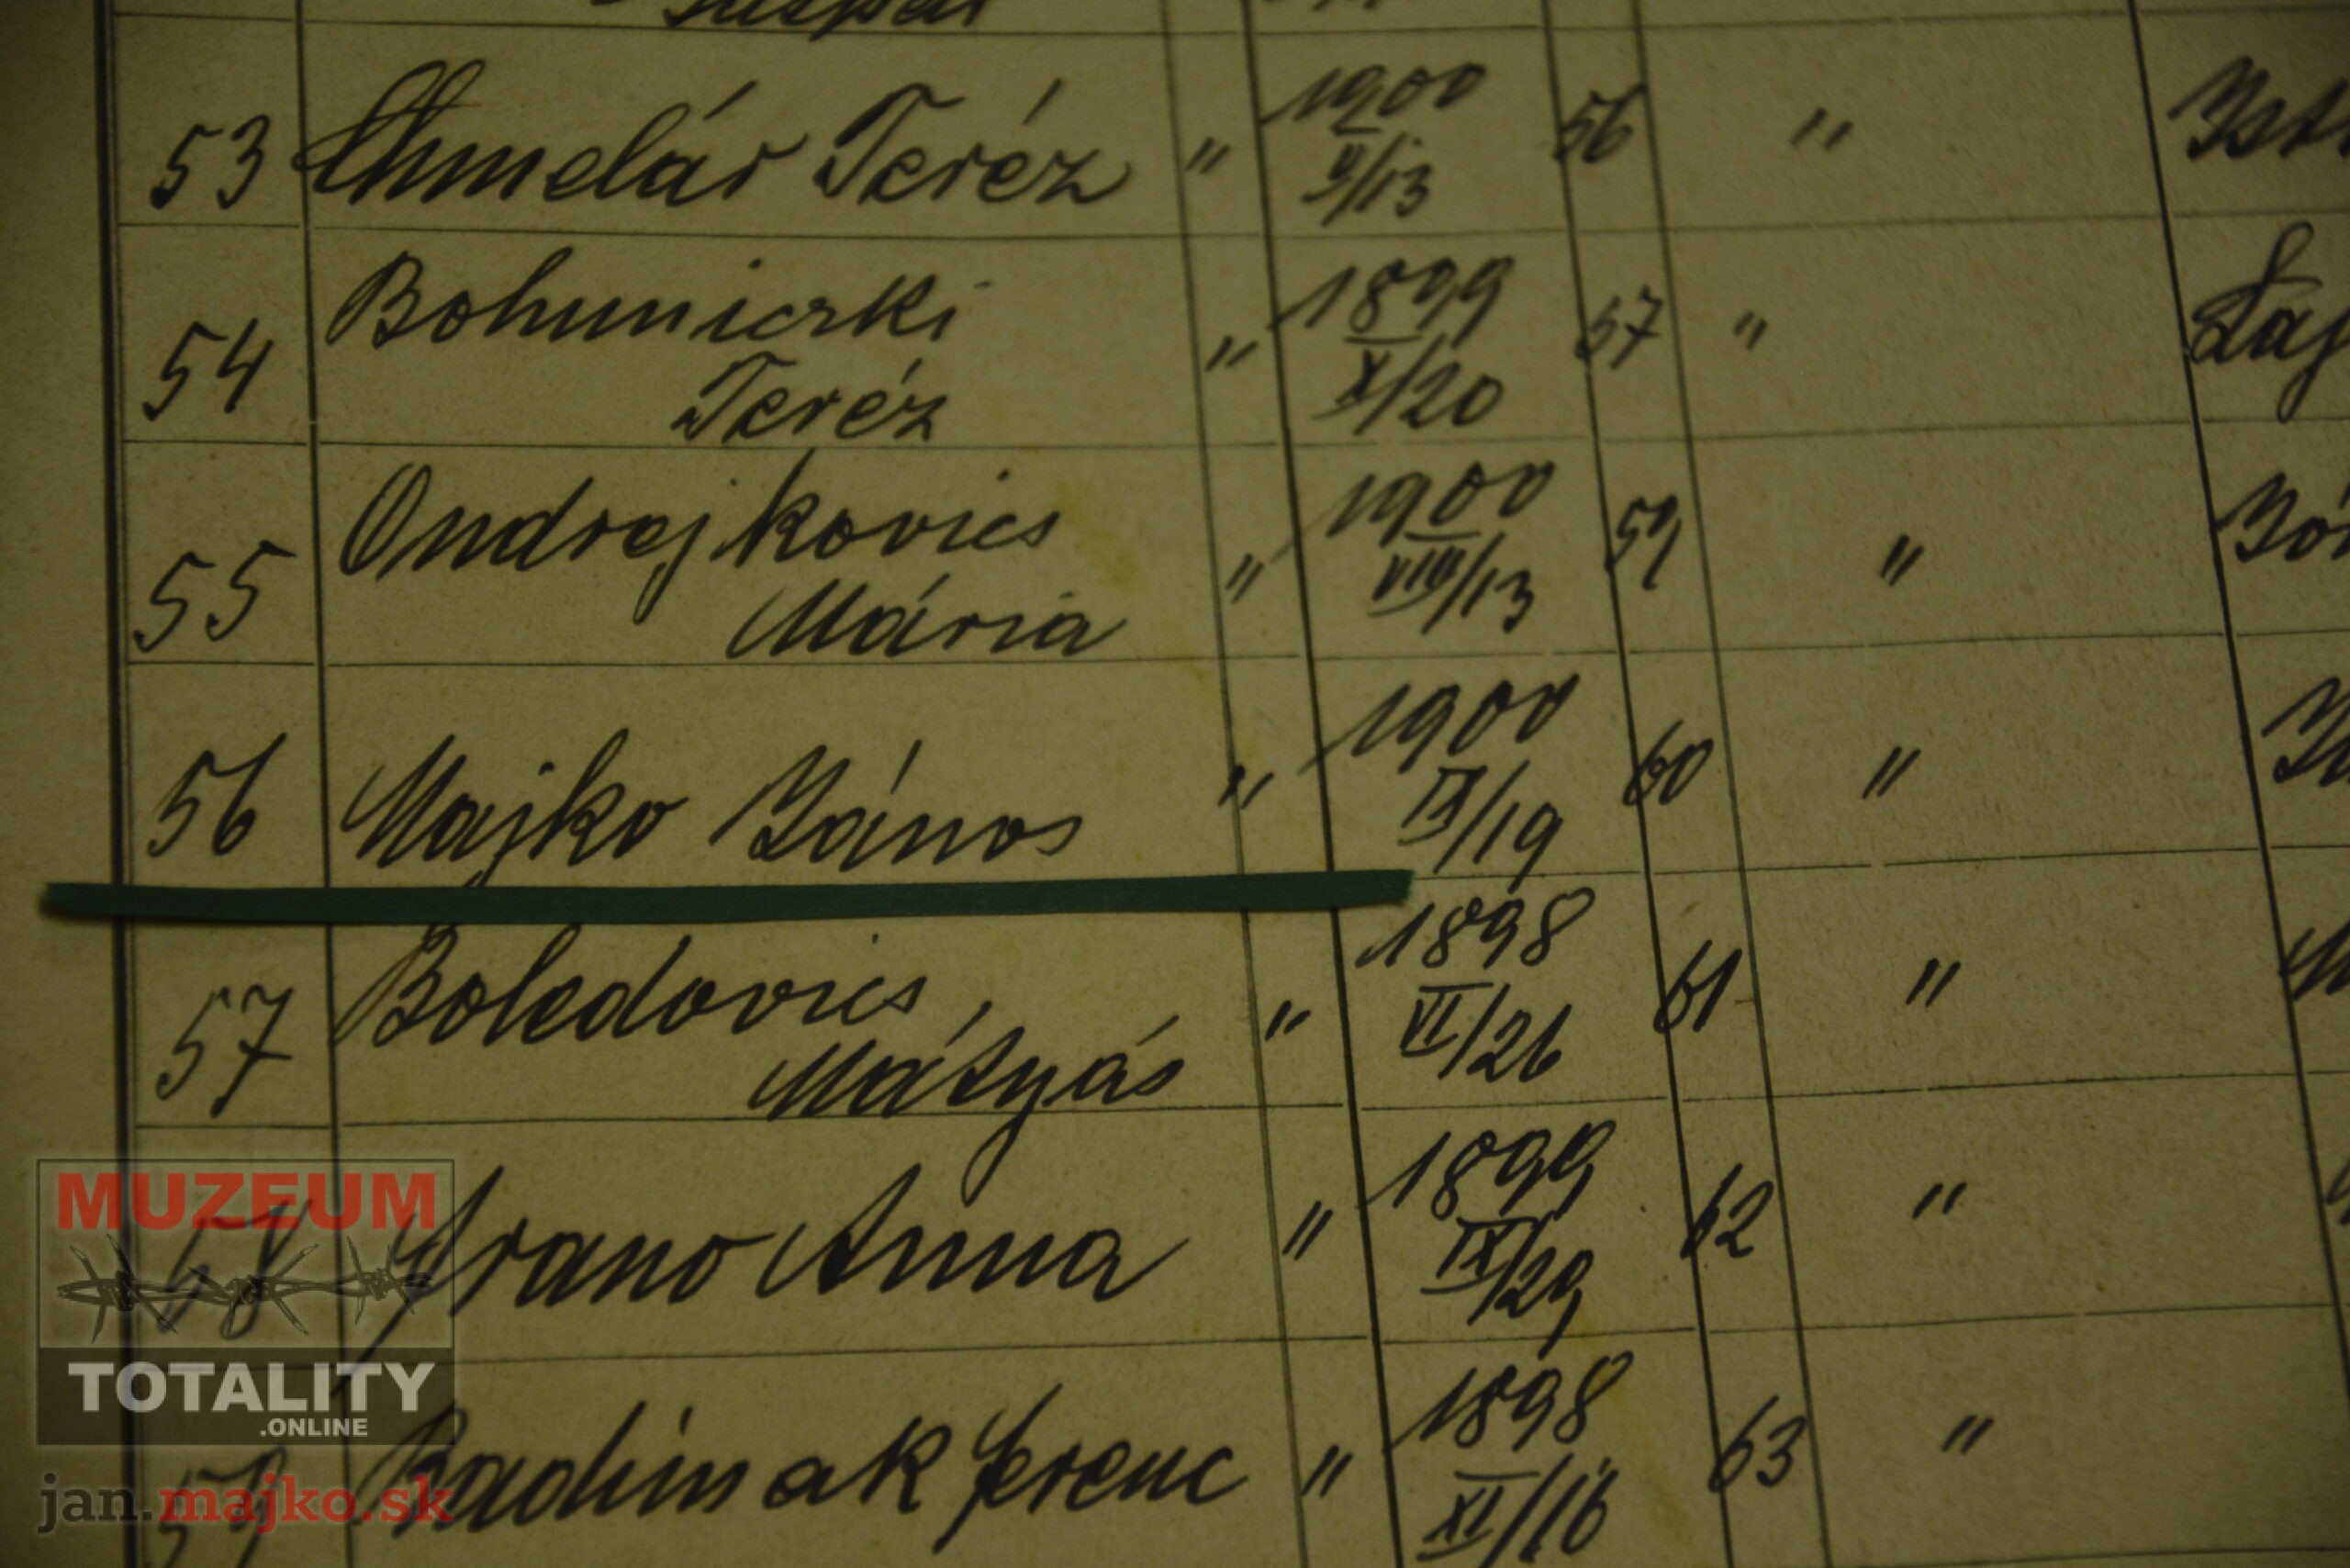 53 Chmelár Teréz " 1900 56 "
V/13
Bohuniczki 1899
54 " 57 "
Teréz X/20
Ondrejkovics 1900 59
55 " VIII/13 "
Mária
1900
56 Majko János " 60 "
IX/19
Boledovics 1898 61
57 " VI/26 "
Mátyás
1899
58 Hrano Anna " 62 "
IX/29
1898
59 Ferenc " 63 "
XI/16
MUZEUM
TOTALITY
.ONLINE
jan.majko.sk